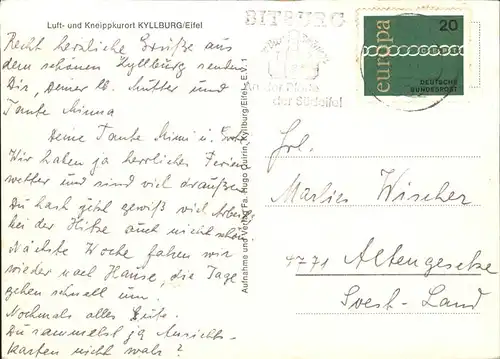 Luft- und Kneippkurort KYLLBURG/Eifel
Recht herzliche Grüße aus
dem schönen Kyllburg senden
Dir, Deiner lb. Mutter und
Tante Minna
Deine Tante Mimi u.
Wir haben ja herrliches Ferien
wetter und sind viel draußen
Du hast jetzt gewiß viel Arbeit
bei der Hitze auch nicht schön.
Nächste Woche fahren wir
wieder nach Hause, die Tage
gehen schnell um.
Nochmals alles Gute.
Du sammelst ja Ansichts-
karten nicht wahr?
Aufnahme und Verlag Fa. Hugo Quirin, Kyllburg/Eifel E. 1
BITBURG
an der Pforte
der Südeifel
europa
20
DEUTSCHE
BUNDESPOST
Frl.
Marlies Wischer
4771 Altengeseke
Soest-Land